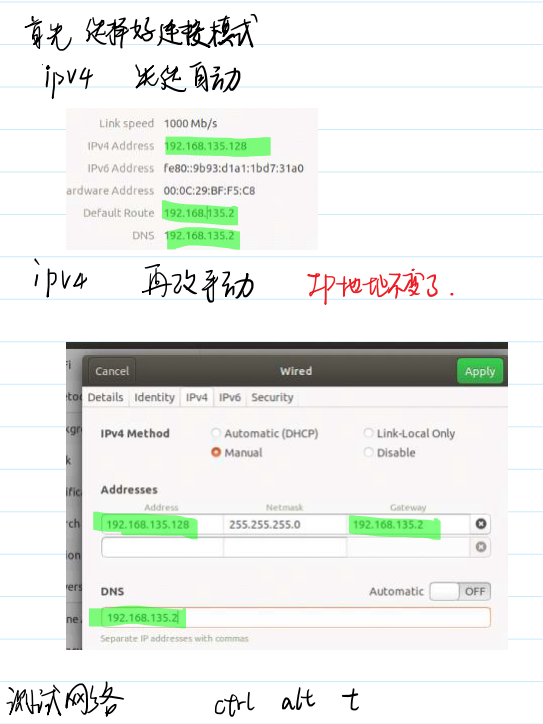 首先 选择好连接模式
ipv4 先选自动
Link speed 1000 Mb/s
IPv4 Address 192.168.135.128
IPv6 Address fe80::9b93:d1a1:1bd7:31a0
ardware Address 00:0C:29:BF:F5:C8
Default Route 192.168.135.2
DNS 192.168.135.2
ipv4 再改手动 IP地址不变了.
Cancel Wired Apply
Details Identity IPv4 IPv6 Security
IPv4 Method Automatic (DHCP) Link-Local Only
Manual Disable
Addresses
Address Netmask Gateway
192.168.135.128 255.255.255.0 192.168.135.2
DNS Automatic OFF
192.168.135.2
Separate IP addresses with commas
测试网络 ctrl alt t